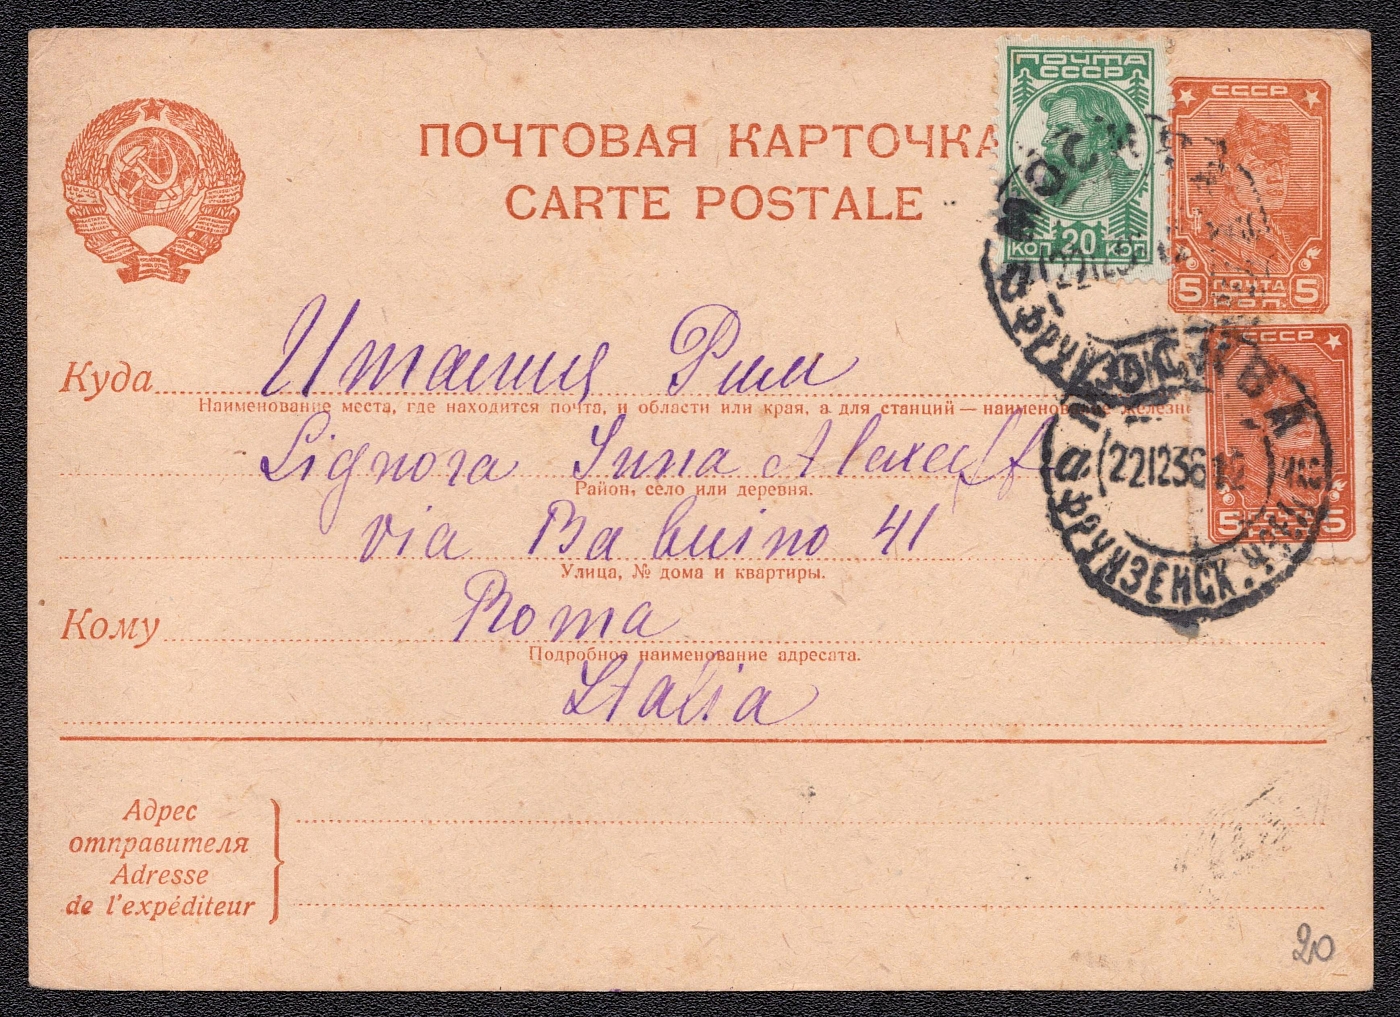 ПОЧТОВАЯ КАРТОЧКА
CARTE POSTALE
ПОЧТА
СССР
КОП 20 КОП
СССР
5 ПОЧТА 5
КОП.
МОСКВА
221236
а ФРУНЗЕНСК
СССР
5 5
МОСКВА
а 22123612
ФРУНЗЕНСК.
Куда Италия Рим
Наименование места, где находится почта, и области или края, а для станций — наименование железн
Signora Inna Alexeeff
Район, село или деревня.
via Babuino 41
Улица, № дома и квартиры.
Кому Roma
Подробное наименование адресата.
Italia
Адрес
отправителя
Adresse
de l'expéditeur
20